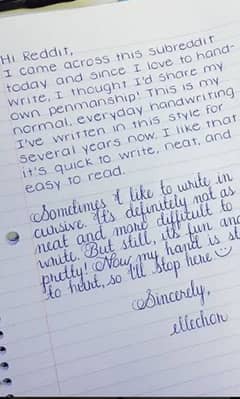 Hi Reddit,
I came across this subreddit
today and since I love to hand-
write, I thought I'd share my
own penmanship! This is my
normal, everyday handwriting
I've written in this style for
several years now. I like that
it's quick to write, neat, and
easy to read.
Sometimes I like to write in
cursive. It's definitely not as
neat and more difficult to
write. But still, it's fun and
pretty! Now my hand is st
to hurt, so I'll stop here
Sincerely,
ellechon